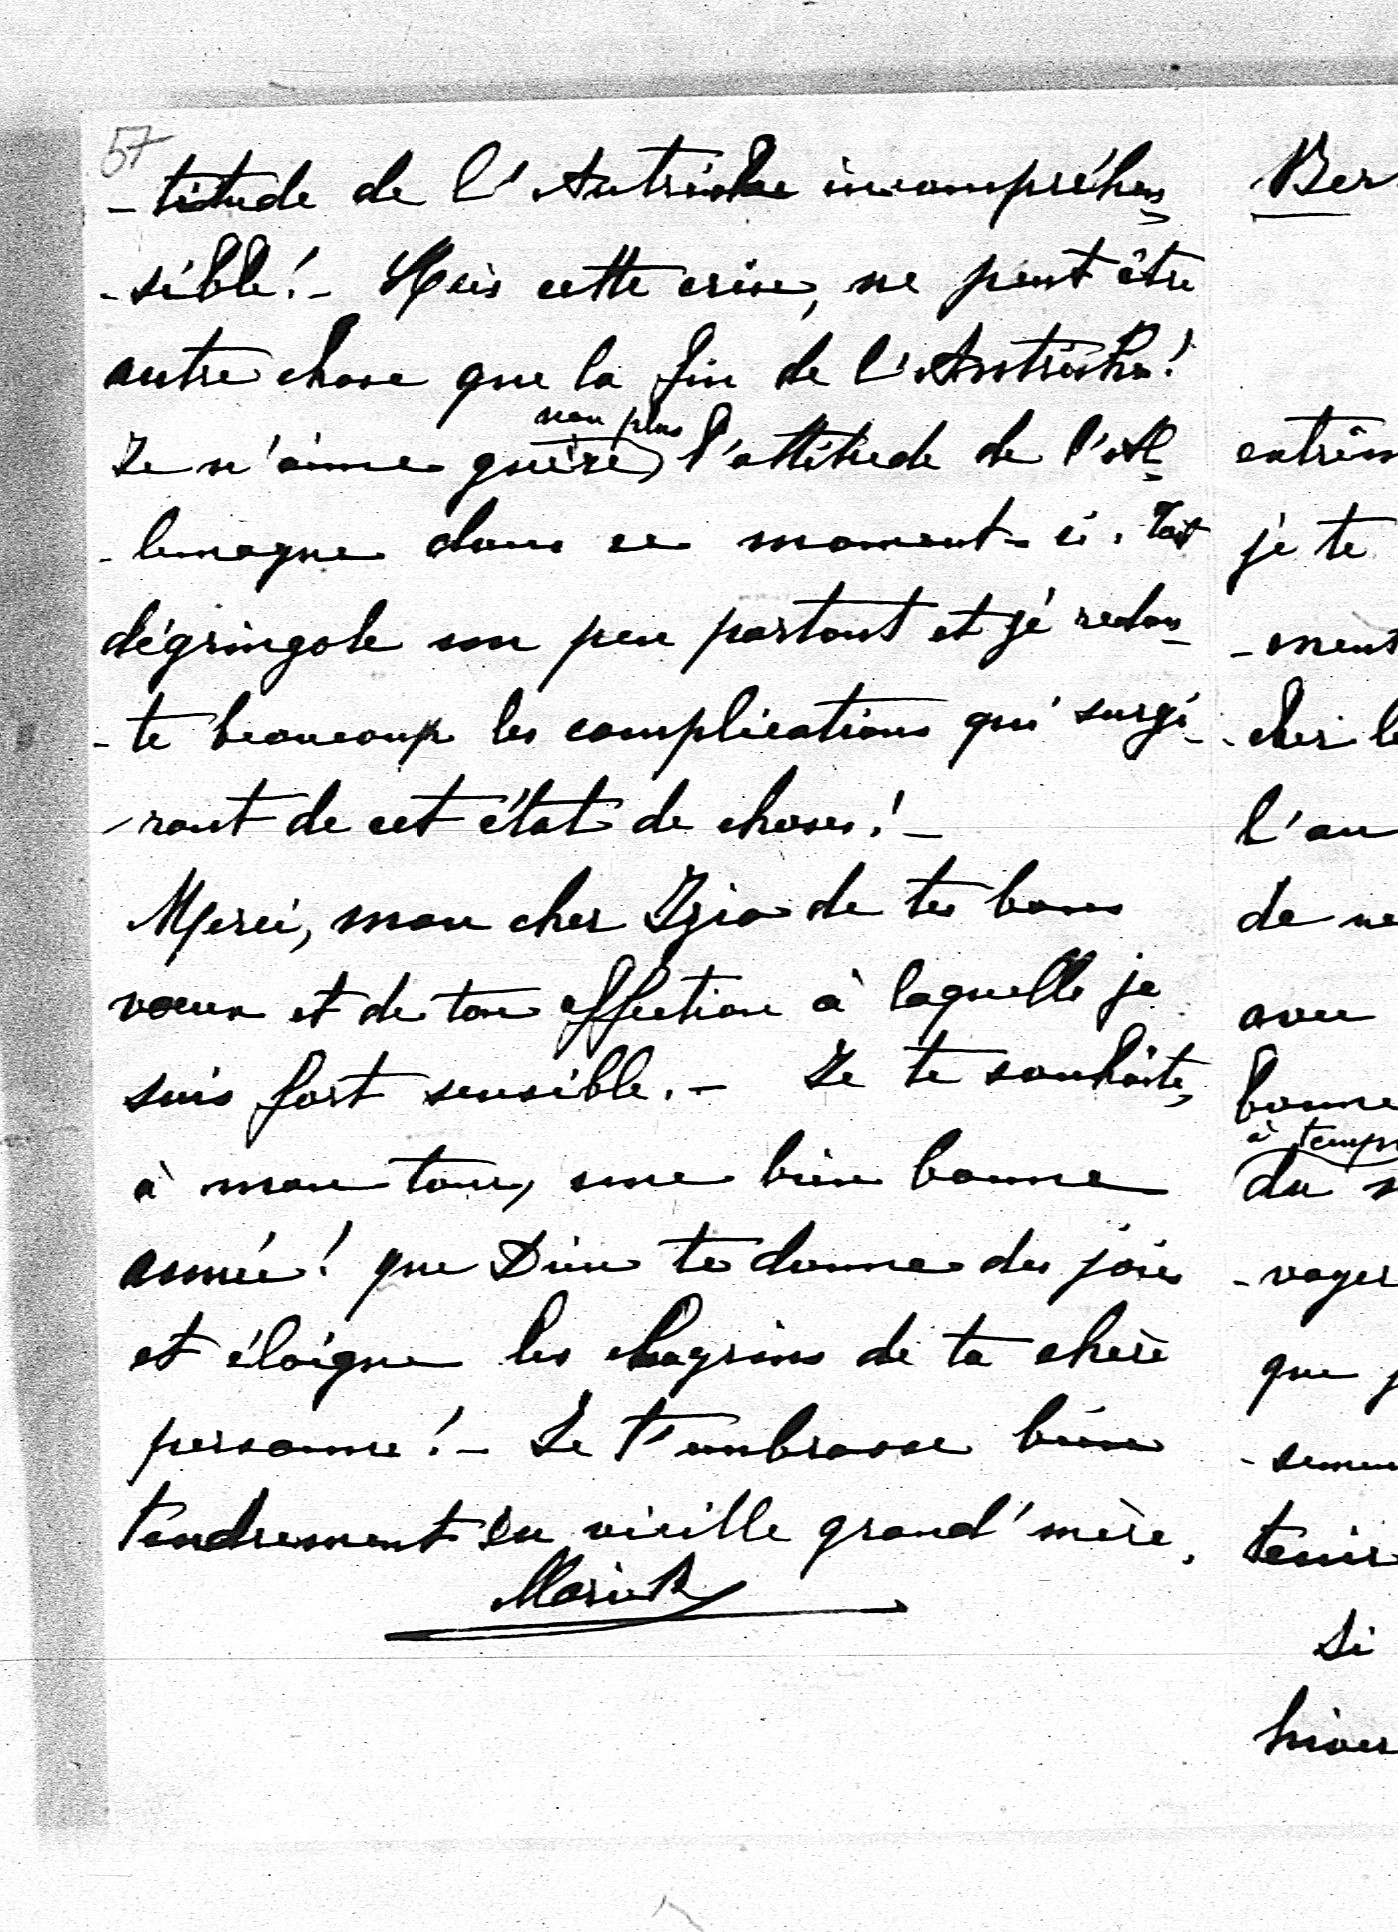 57
- titude de l'Autriche incompréhen
- sible! - Mais cette crise, ne peut être
autre chose que la fin de l'Autriche!
non plus
Je n'aime guère l'attitude de l'Al
- lemagne dans ce moment-ci. Tout
dégringole un peu partout et je redou
- te beaucoup les complications qui surgi -
- ront de cet état de choses! -
Merci, mon cher Izio de tes bons
voeux et de ton affection à laquelle je
suis fort sensible. - Je te souhaite,
à mon tour, une bien bonne
année! que Dieu te donne des joies
et éloigne les chagrins de ta chère
personne! - Je t'embrasse bien
tendrement en vieille grand'mère.
Ber
entrem
je te
- ment
cher le
l'au
de ne
avec
bonne
à temps
du
- voyer
que
- semen
tenir
Si
hiver